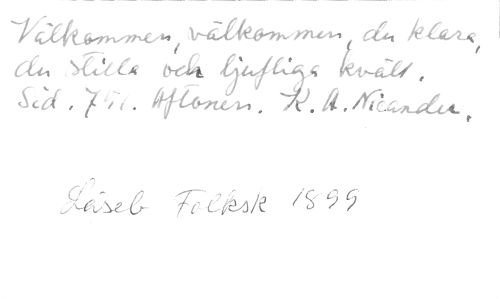 Välkommen, välkommen, du klara,
du stilla och ljufliga kväll.
Sid. Aftonen. K. A. Nicander.
Läseb Folksk 1899